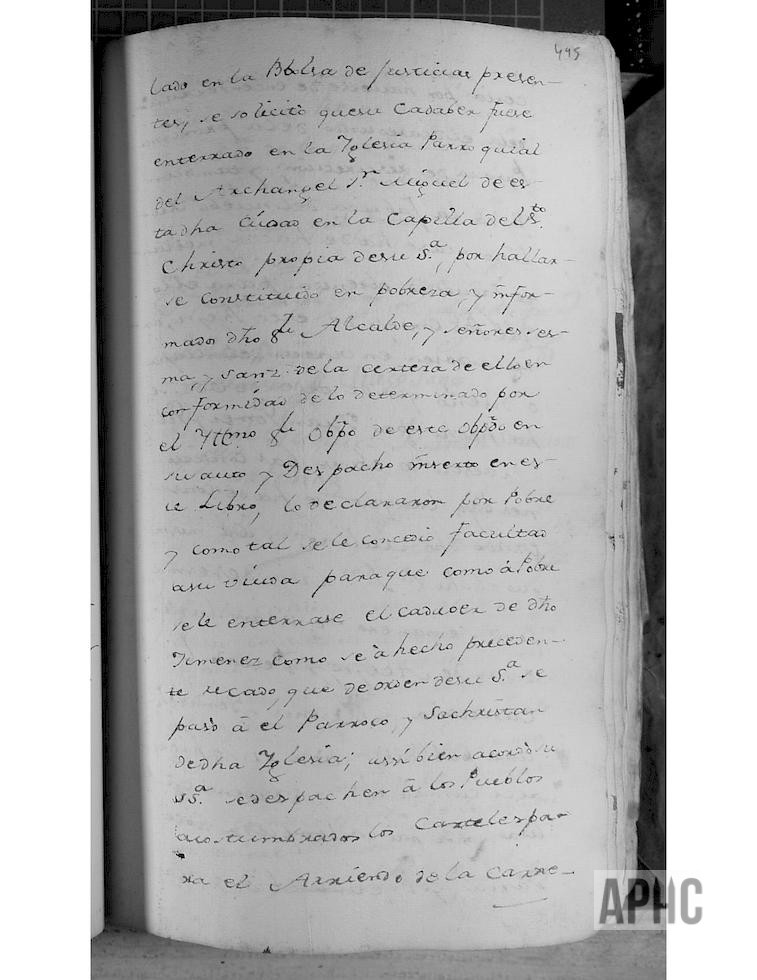 445
lado en la Bolsa de Justicias presen-
tes, se solicitò que su Cadaber fuese
enterrado en la Yglesia Parroquial
del Archangel Sn. Miguel de es-
ta dha Ciudad en la Capilla del Sto.
Christo propia de su Sa., por hallar-
se constituido en pobreza, y infor-
mados dho Sr. Alcalde, y señores ses-
ma, y Sanz de la certeza de ello en
conformidad de lo determinado por
el Yttmo Sr. Obpo de este Obpdo en
su auto y Despacho inserto en es-
te Libro, lo declararon por Pobre
y como tal se le concedio facultad
a su viuda para que como à Pobre
se le enterrase el cadaver de dho
Ximenez como se à hecho preceden-
te recado, que de orden de su Sa. se
pasò à el Parroco, y Sachristan
de dha Yglesia; assi bien acordò su
Sa. se despachen à los Pueblos
acostumbrados los Carteles pa-
ra el Arriendo de la Carne-
APHC